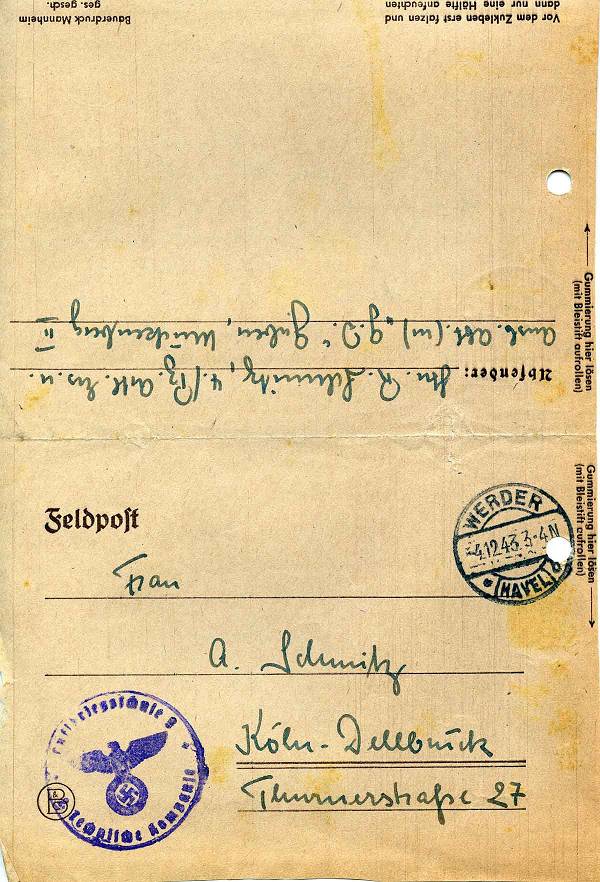 Vor dem Zukleben erst falzen und
dann nur eine Hälfte anfeuchten
Bauerdruck Mannheim
ges. gesch.
Gummierung hier lösen
(mit Bleistift aufrollen)
Absender: R. Schmitz, 4./Pz. Art. Ers. u.
Ausb. Abt. (m) „G.D." Guben, Mückenberg II
Gummierung hier lösen
(mit Bleistift aufrollen)
Feldpost
WERDER
-4.12.43.3-4N
(HAVEL)
Frau
A. Schmitz
Köln-Dellbrück
Thurnerstraße 27
Luftkriegsschule
Technische Kompanie